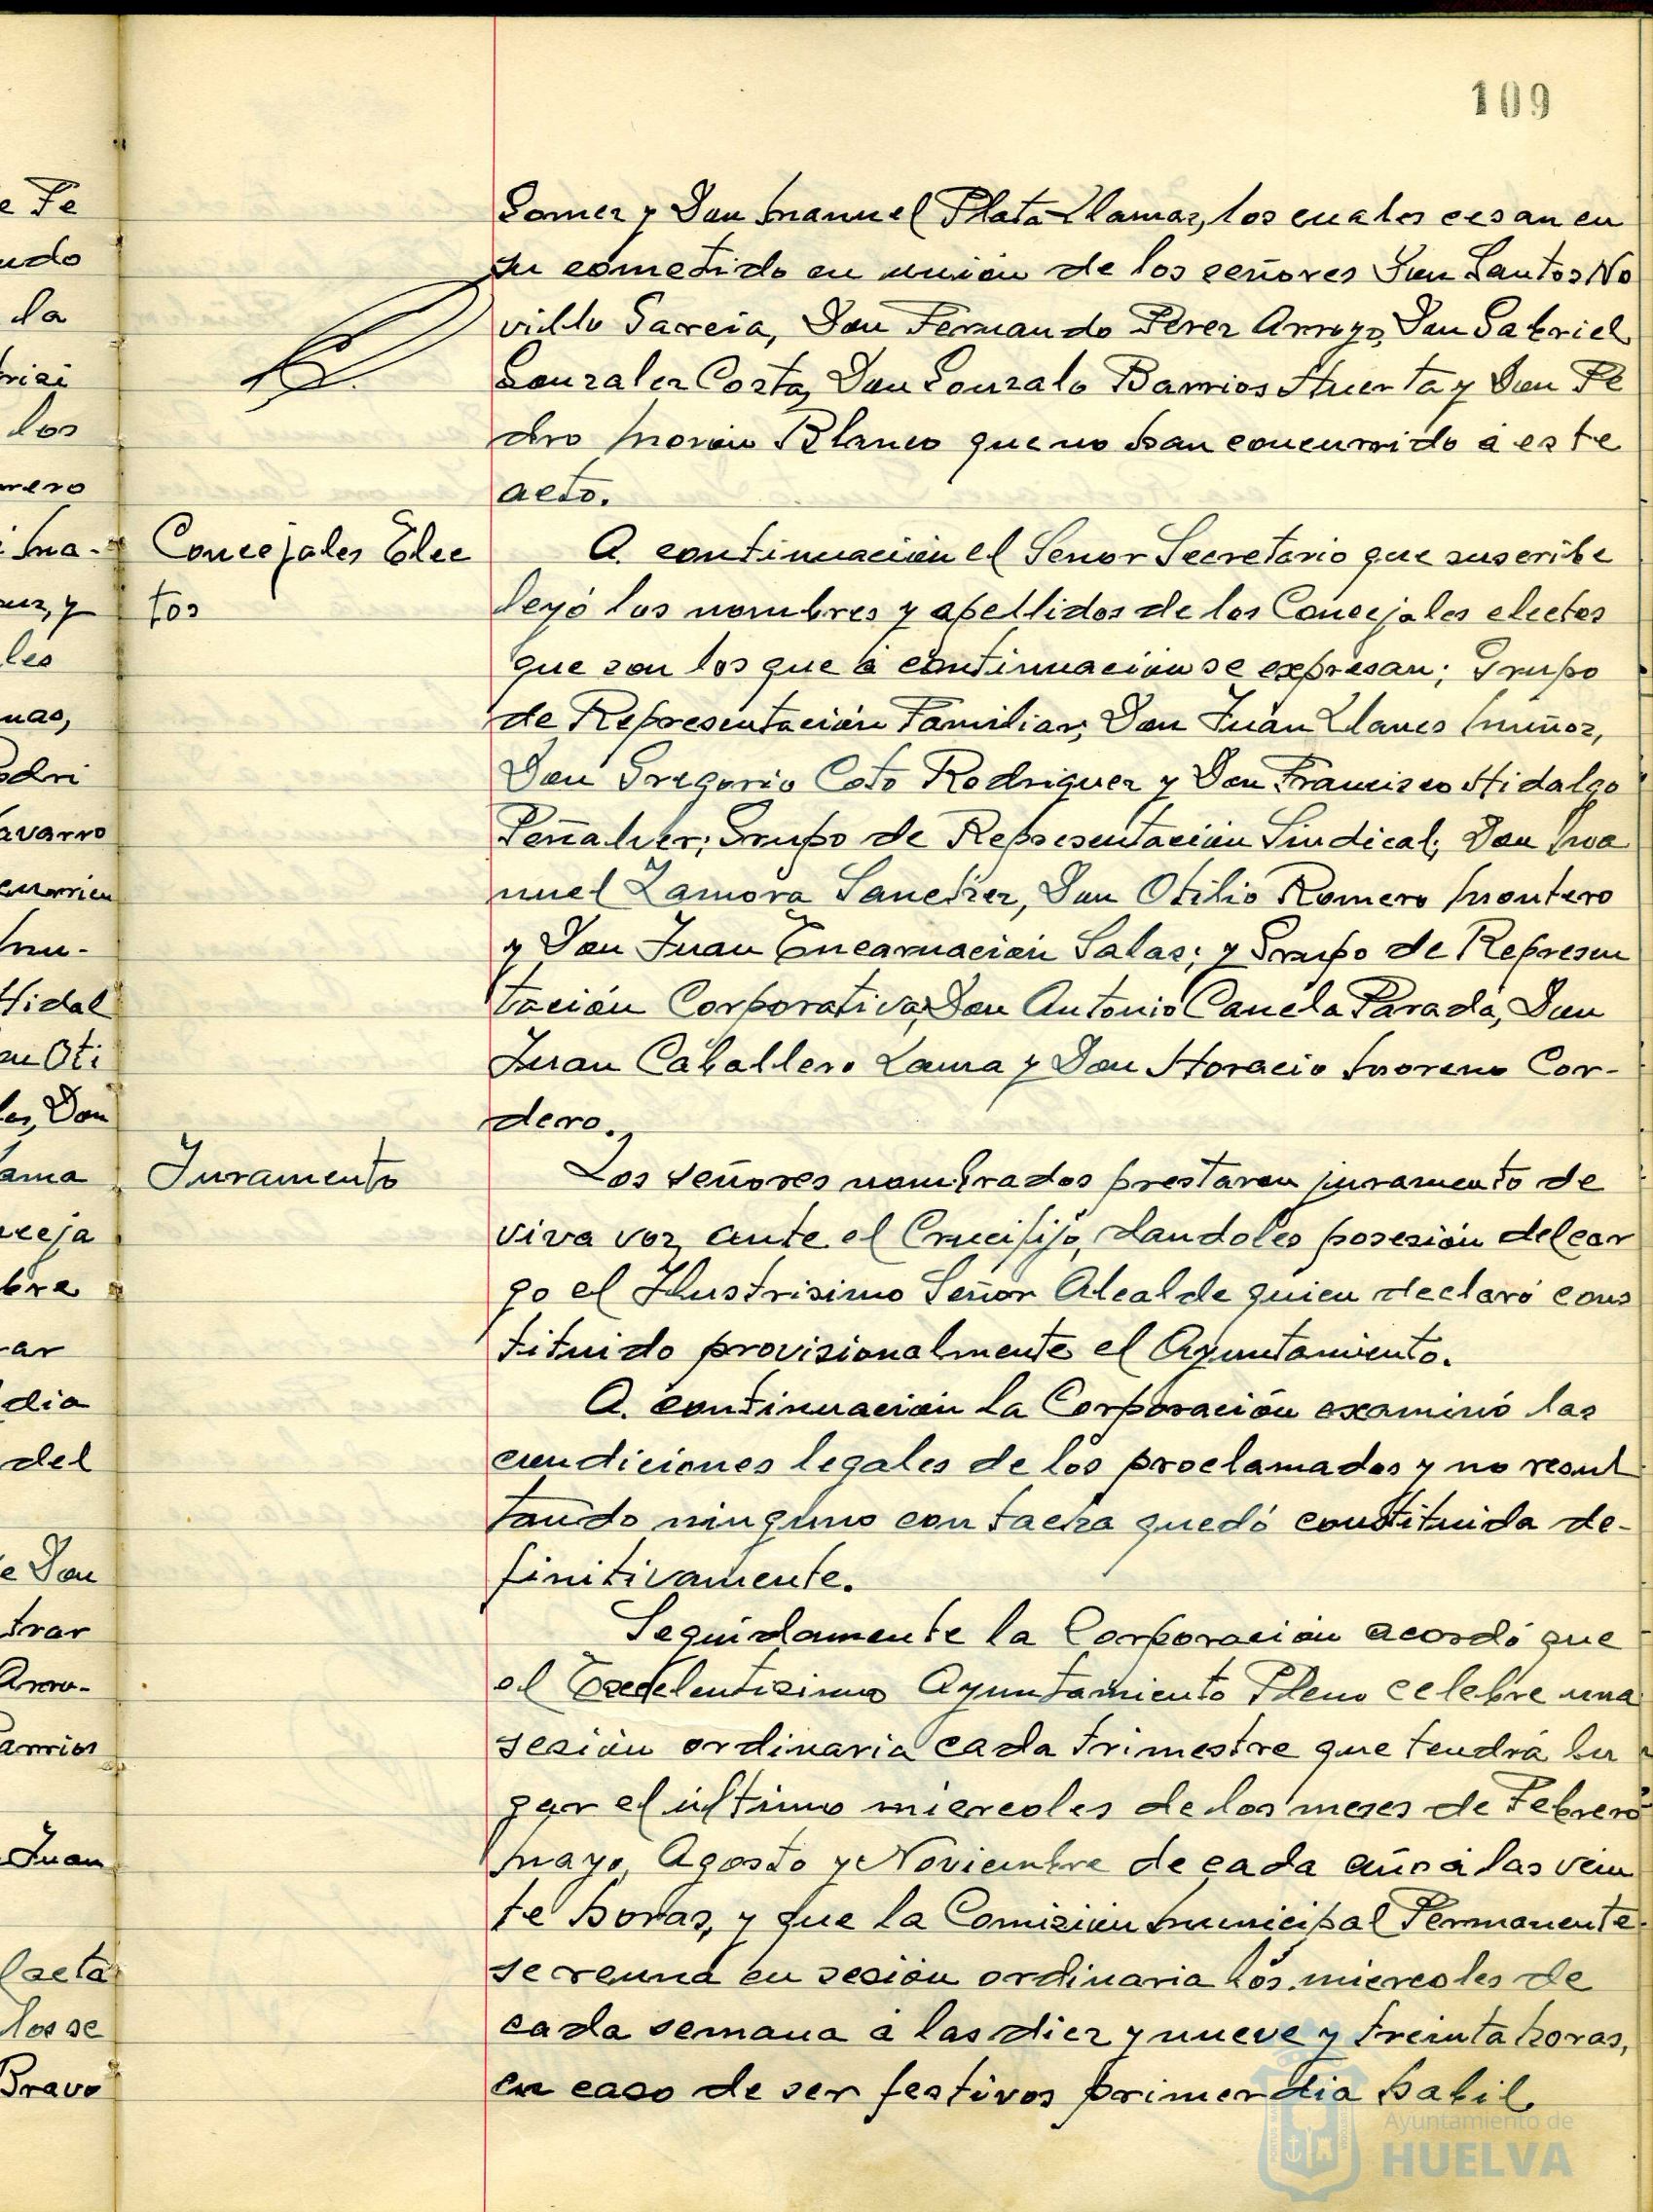 109
e Fe
udo
la
los
mero
uz, y
les
nas,
odri
avarro
mu-
Hidal
an Oti
les, Don
ama
nceja
bre
ar
dia
del
e Don
trar
Arro-
arrios
Juan
los se
Bravo
Gomez y Don Manuel Plata Llamas, los cuales cesan en
su cometido en unión de los señores Don Santos No
villo Garcia, Don Fernando Perez Arroyo, Don Gabriel
Gonzalez Costa, Don Gonzalo Barrios Huerta y Don Pe
dro Morón Blanco que no han concurrido á este
acto.
Concejales Elec
tos
A continuación el Señor Secretario que suscribe
leyó los nombres y apellidos de los Concejales electos
que son los que á continuación se expresan; Grupo
de Representación Familiar; Don Juan Llanes Muñoz,
Don Gregorio Coto Rodriguez y Don Francisco Hidalgo
Peñalver; Grupo de Representación Sindical; Don Ma
nuel Zamora Sanchez, Don Otilio Romero Montero
y Don Juan Encarnación Salas; y Grupo de Represen
tación Corporativa, Don Antonio Canela Parada, Don
Juan Caballero Lama y Don Horacio Moreno Cor-
dero.
Juramento
Los señores nombrados prestaron juramento de
viva voz ante el Crucifijo, dandoles posesión del car
go el Ilustrisimo Señor Alcalde quien declaró cons
tituido provisionalmente el Ayuntamiento.
A continuación la Corporación examinó las
condiciones legales de los proclamados y no resul
tando ninguno con tacha quedó constituida de-
finitivamente.
Seguidamente la Corporación acordó que
el Excelentisimo Ayuntamiento Pleno celebre una
sesión ordinaria cada trimestre que tendrá lu
gar el último miercoles de los meses de Febrero
Mayo, Agosto y Noviembre de cada año á las vein
te horas, y que la Comisión Municipal Permanente
se reuna en sesión ordinaria los miercoles de
cada semana á las diez y nueve y treinta horas,
en caso de ser festivos primer dia habil.
Ayuntamiento de
HUELVA